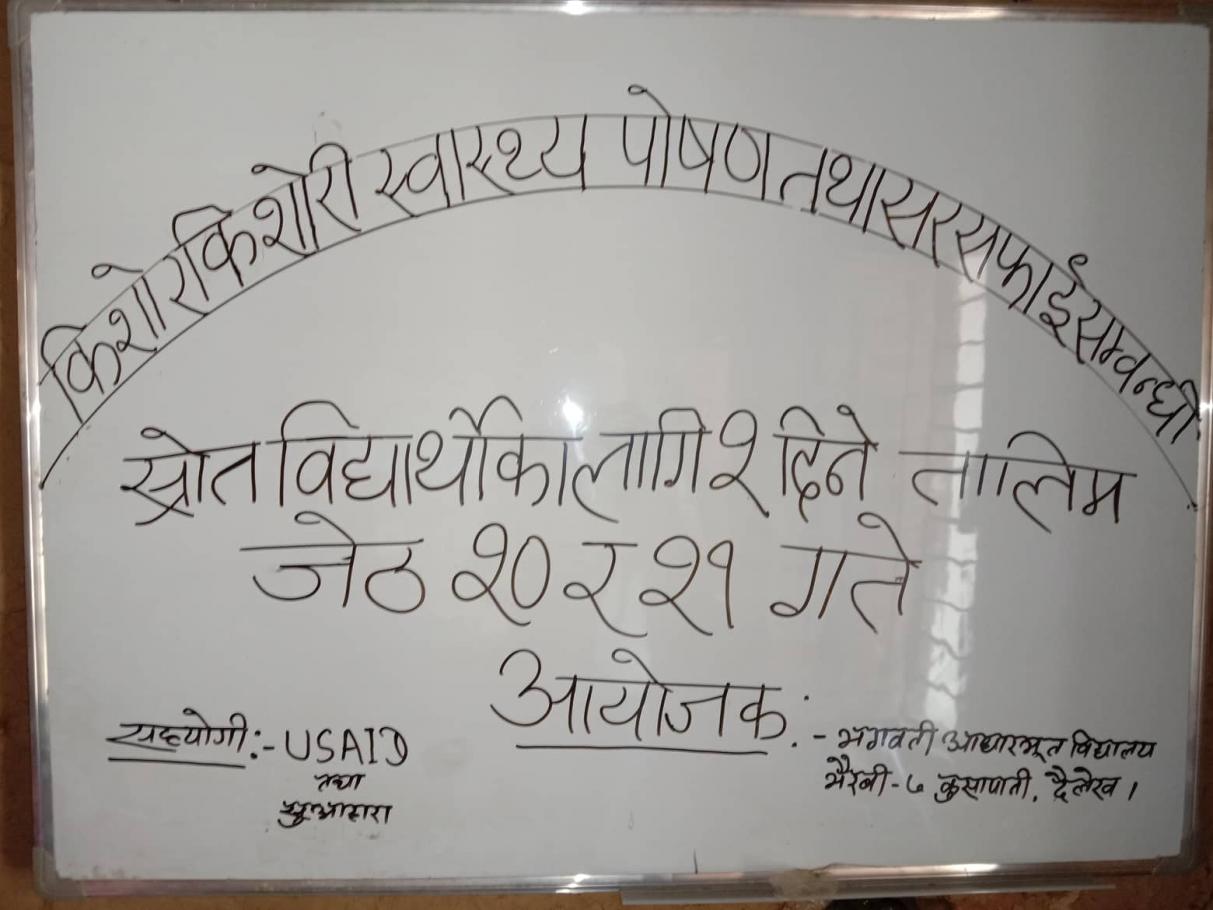 किशोरकिशोरी स्वास्थ्य पोषण तथा सरसफाई सम्बन्धी
स्रोत विद्यार्थीका लागि २ दिने तालिम
जेठ २० र २१ गते
आयोजक:- भगवती आधारभूत विद्यालय
भैरवी-७ कुसापानी, दैलेख ।
सहयोगी:- USAID
तथा
सुआहारा